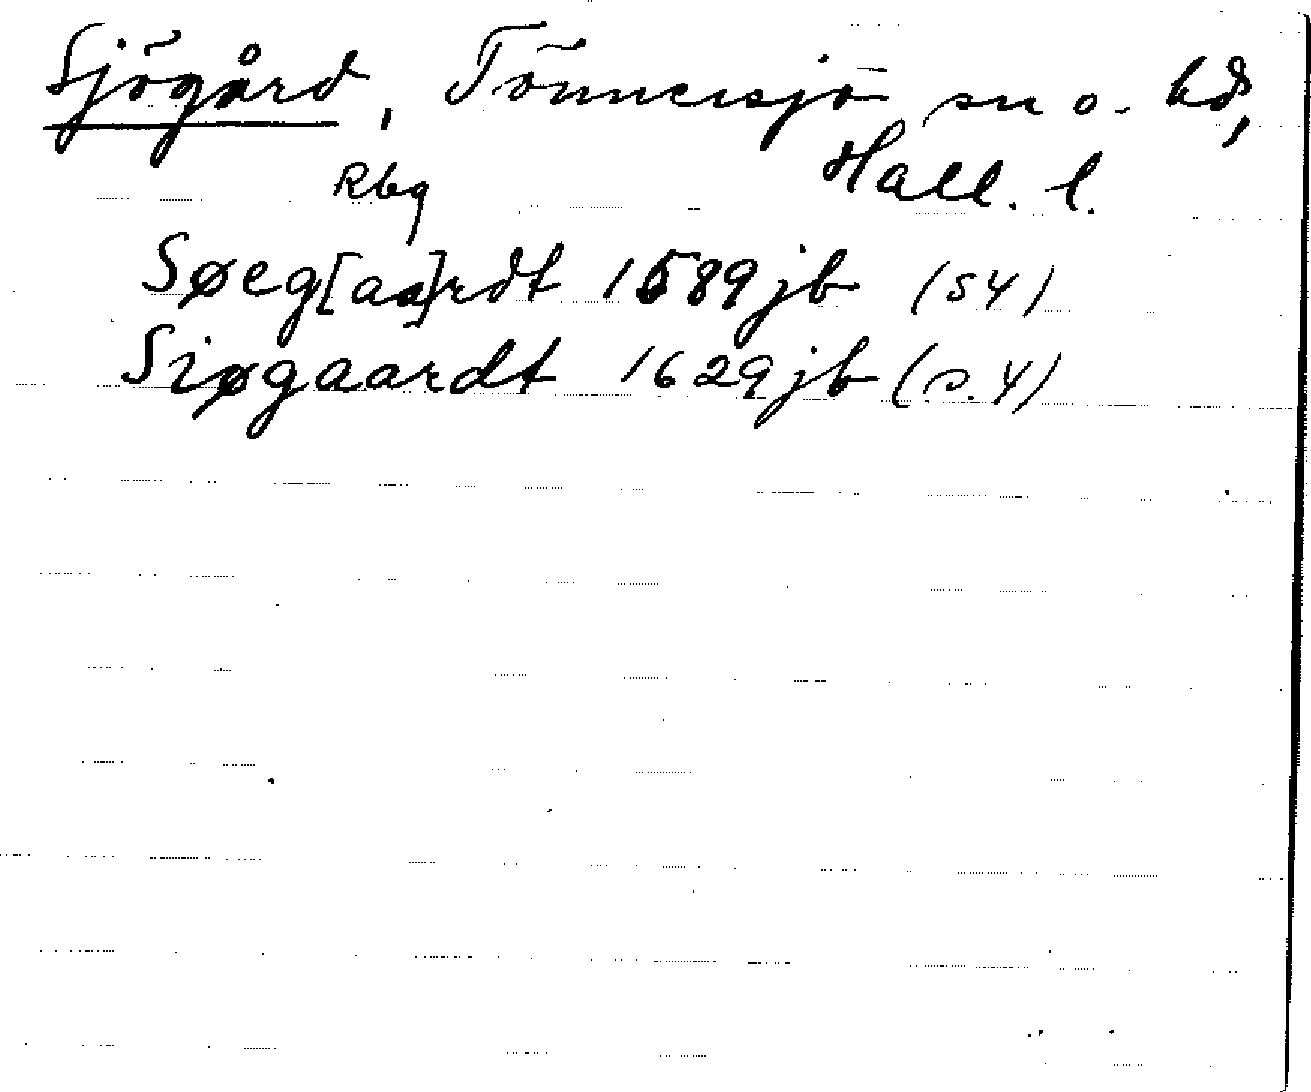 Sjögård, Tönnersjö sn o. hd,
Hall. l.
Rbg
Søeg[aa]rdt 1589 jb (s 4)
Siøgaardt 1629 jb (s. 4)